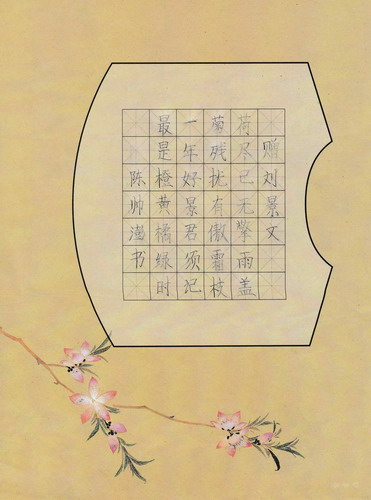 赠刘景文
荷尽已无擎雨盖
菊残犹有傲霜枝
一年好景君须记
最是橙黄橘绿时
陈帅书